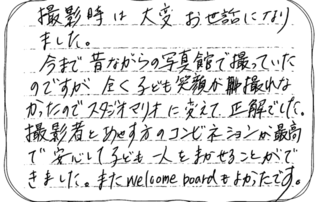 撮影時は大変お世話になり
ました。
今まで昔ながらの写真館で撮っていた
のですが 全く子ども笑顔が撮れな
かったのでスタジオマリオに変えて正解でした。
撮影者とあやす方のコンビネションが最高
で安心して子ども一人をまかせることがで
きました。またwelcome boardもよかったです。